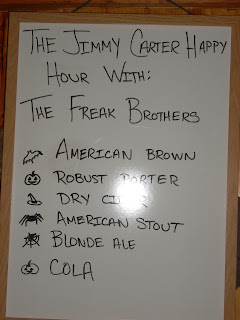 THE JIMMY CARTER HAPPY
HOUR WITH:
THE FREAK BROTHERS
AMERICAN BROWN
ROBUST PORTER
DRY CIDER
AMERICAN STOUT
BLONDE ALE
COLA